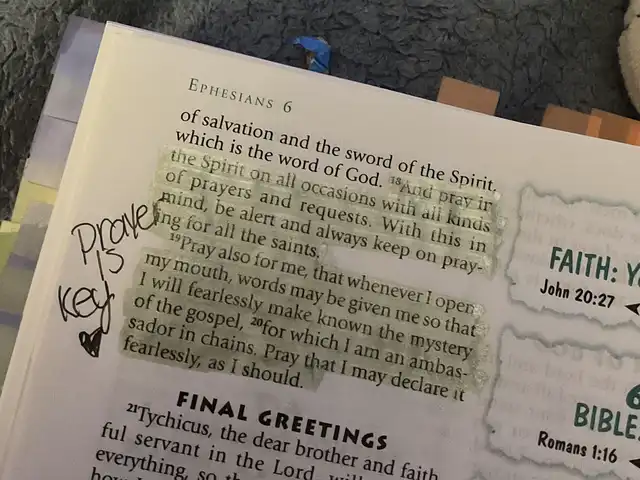 EPHESIANS 6
of salvation and the sword of the Spirit,
which is the word of God. 18And pray in
the Spirit on all occasions with all kinds
of prayers and requests. With this in
mind, be alert and always keep on pray-
ing for all the saints.
19Pray also for me, that whenever I open
my mouth, words may be given me so that
I will fearlessly make known the mystery
of the gospel, 20for which I am an ambas-
sador in chains. Pray that I may declare it
fearlessly, as I should.
FINAL GREETINGS
21Tychicus, the dear brother and faith
ful servant in the Lord, will
everything, so
how I
prayer
is
key
FAITH:
John 20:27
6
BIBLE
Romans 1:16